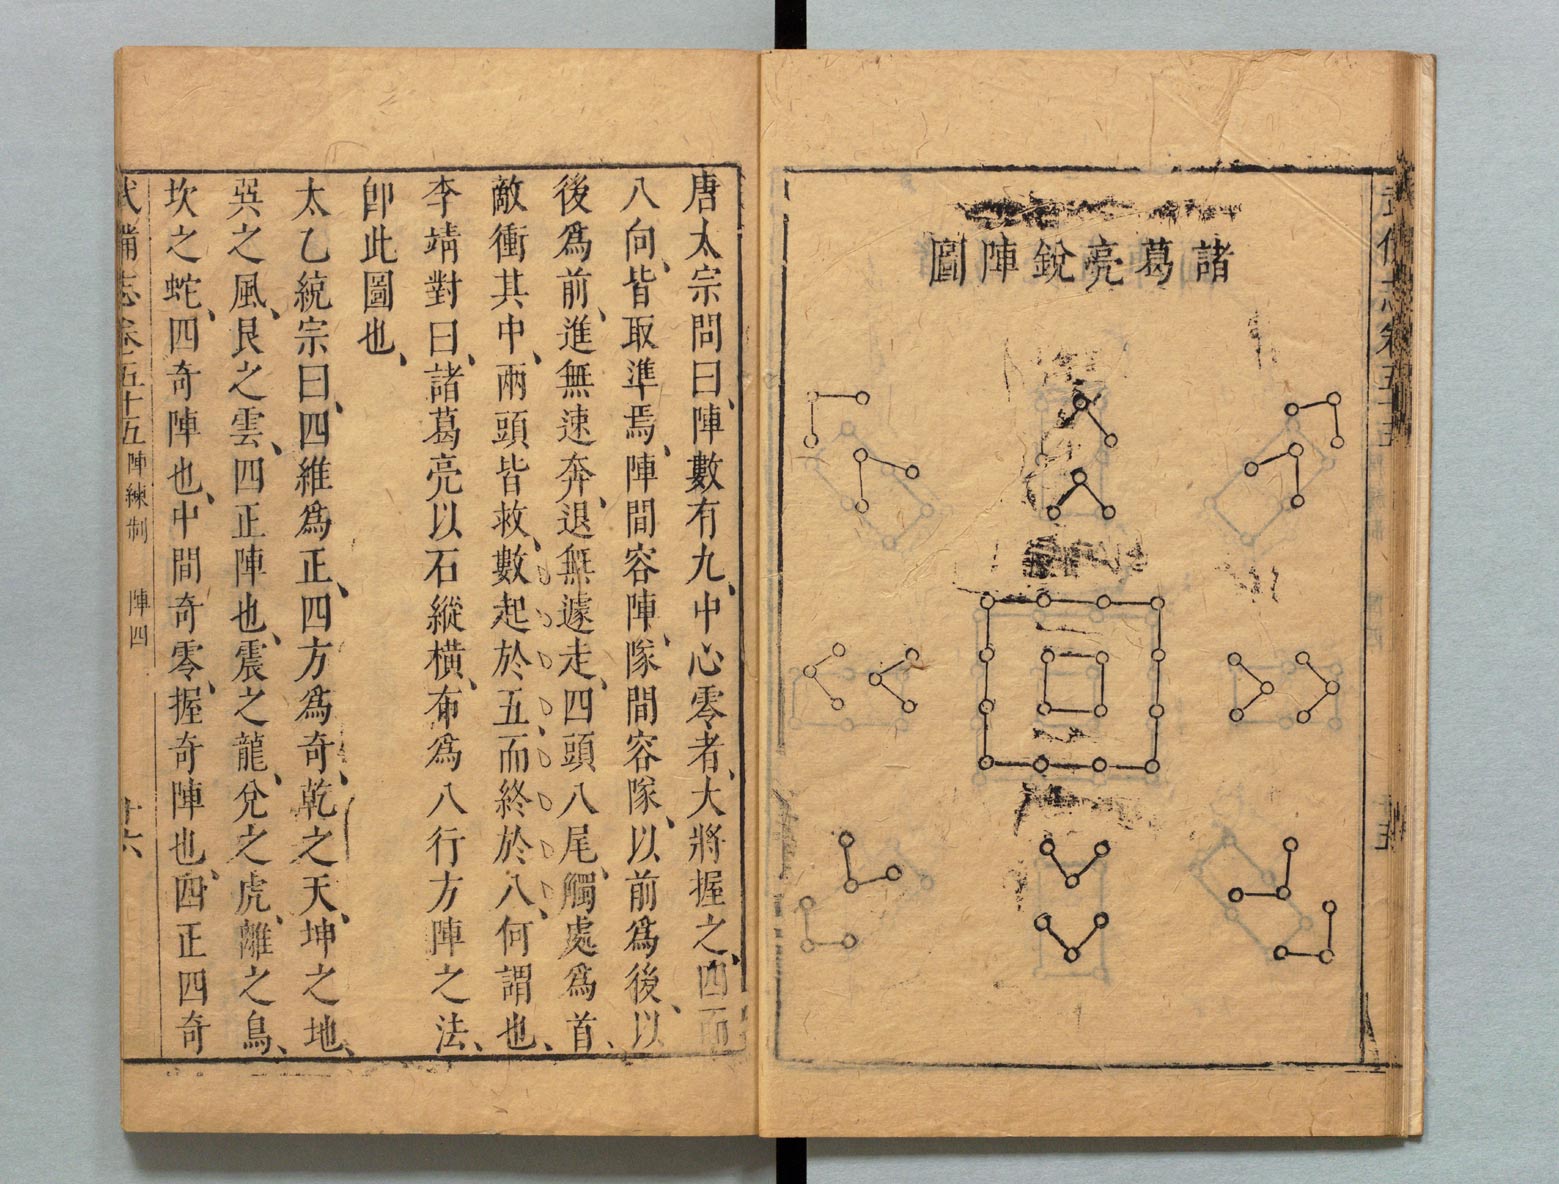 武備志卷五十五
諸葛亮銳陣圖
唐太宗問曰、陣數有九、中心零者、大將握之、四面
八向、皆取準焉、陣間容陣、隊間容隊、以前爲後、以
後爲前、進無速奔、退無遽走、四頭八尾、觸處爲首、
敵衝其中、兩頭皆救、數起於五、而終於八、何謂也、
李靖對曰、諸葛亮以石縱橫、布爲八行方陣之法、
卽此圖也、
太乙統宗曰、四維爲正、四方爲奇、乾之天、坤之地、
巽之風、艮之雲、四正陣也、震之龍、兌之虎、離之鳥、
坎之蛇、四奇陣也、中間奇零、握奇陣也、四正四奇
武備志卷五十五 陣練制 陣四 十六